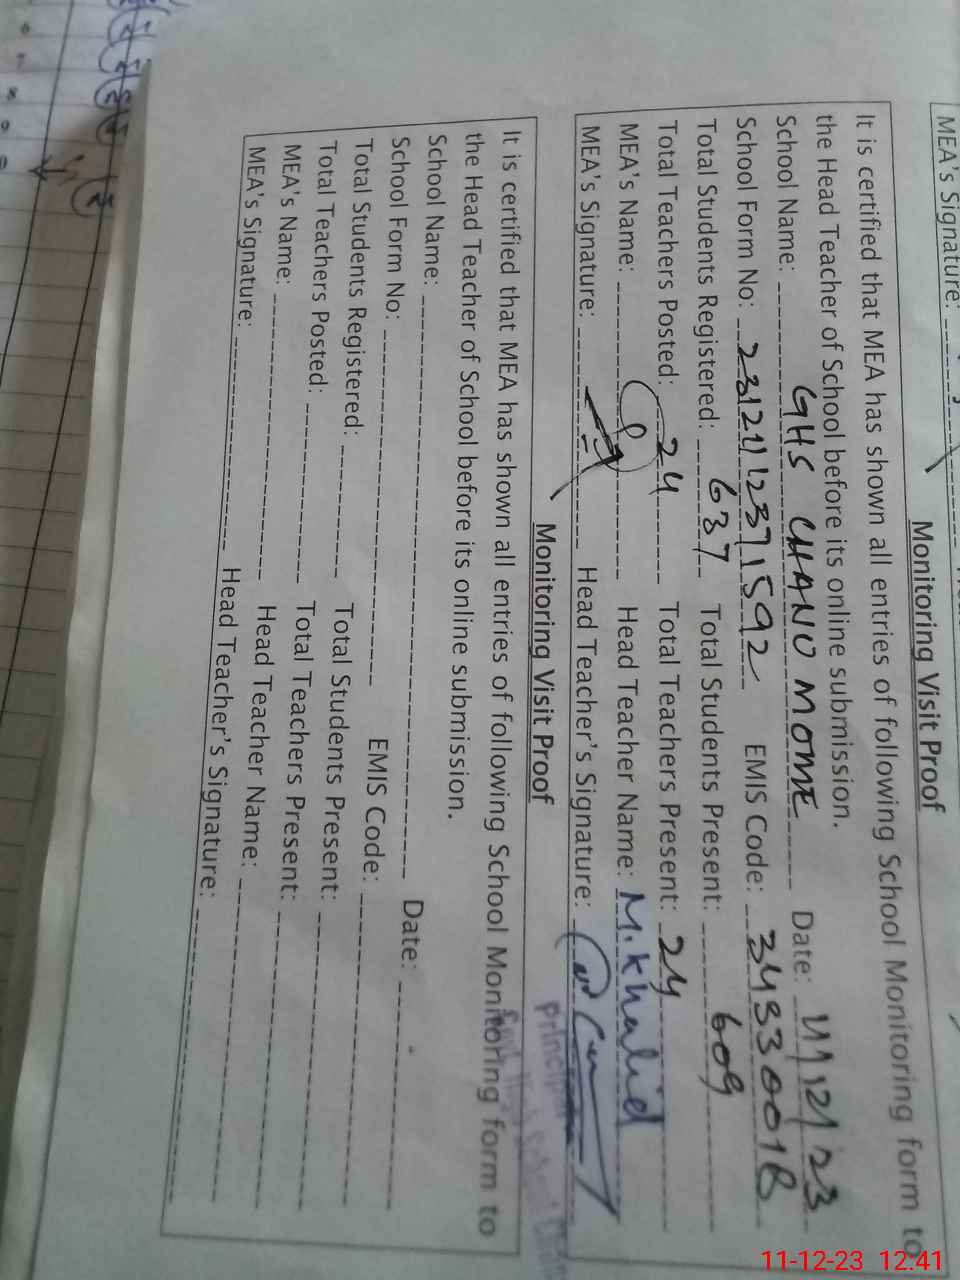 MEA's Signature:
Monitoring Visit Proof
It is certified that MEA has shown all entries of following School Monitoring form to
the Head Teacher of School before its online submission.
School Name: GHS CHANO MOME Date: 11/12/23
School Form No: Total Students Registered: 637 Total Students Present: 609
EMIS Code: 34330018
Total Teachers Posted: 24 Total Teachers Present: 24
MEA's Name: Head Teacher Name: M. Khalid
MEA's Signature: Head Teacher's Signature:
Principal
Monitoring Visit Proof
It is certified that MEA has shown all entries of following School Monitoring form to
the Head Teacher of School before its online submission.
School Name: Date:
School Form No: EMIS Code:
Total Students Registered: Total Students Present:
Total Teachers Posted: Total Teachers Present:
MEA's Name: Head Teacher Name:
MEA's Signature: Head Teacher's Signature:
11-12-23 12.41